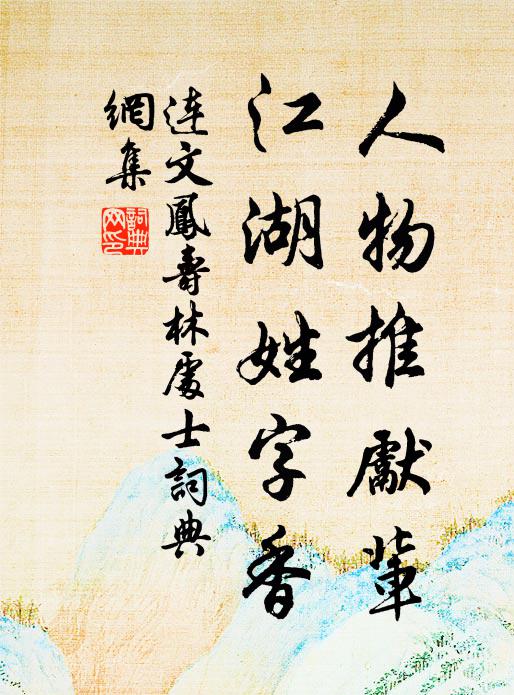 人物推獻輩
江湖姓字香
连文鳳壽林處士詞典
網集
詞典網印